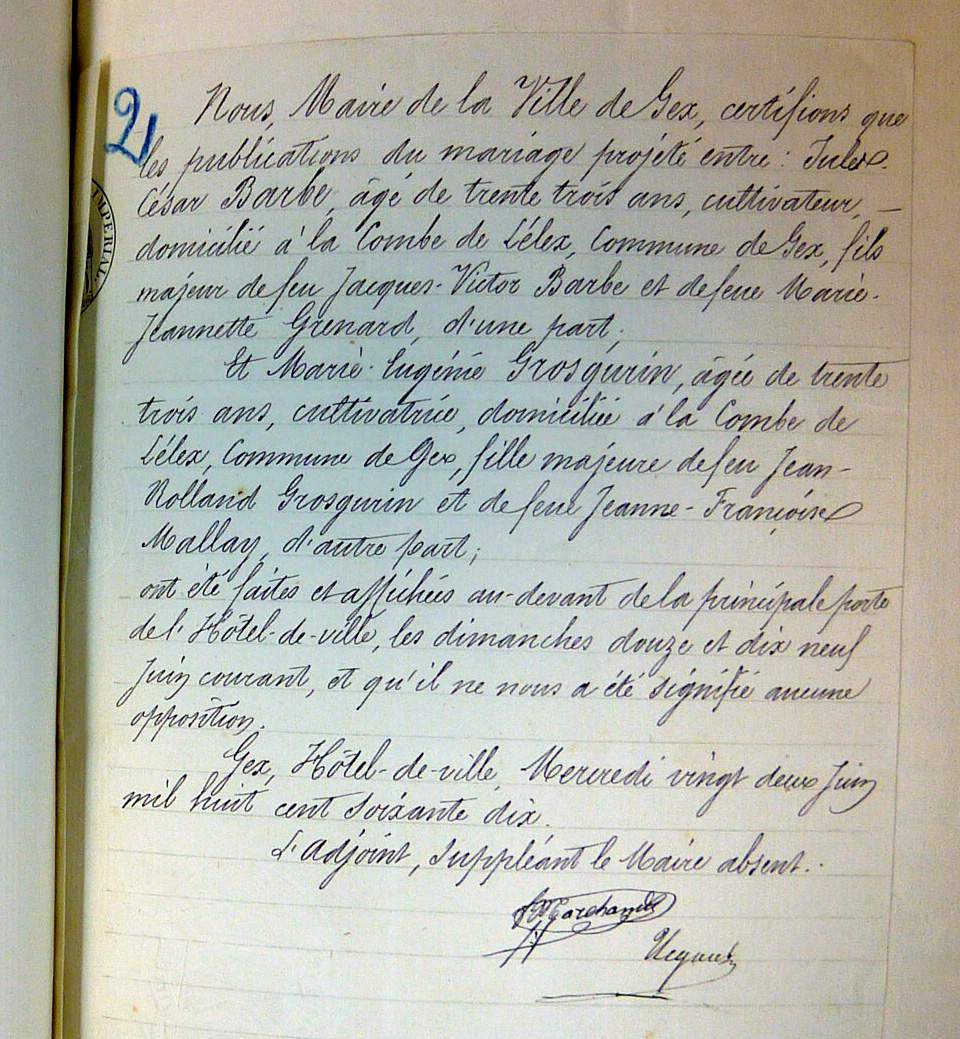 2
IMPERIAL
Nous, Maire de la Ville de Gex, certifions que
les publications du mariage projeté entre : Jules
César Barbe, âgé de trente trois ans, cultivateur, —
domicilié à la Combe de Lélex, Commune de Gex, fils
majeur de feu Jacques-Victor Barbe et de feue Marie-
Jeannette Grenard, d'une part,
Et Marie-Eugénie Grosgurin, âgée de trente
trois ans, cultivatrice, domiciliée à la Combe de
Lélex, Commune de Gex, fille majeure de feu Jean-
Rolland Grosgurin et de feue Jeanne-Françoise
Mallay, d'autre part;
ont été faites et affichées au-devant de la principale porte
de l'Hôtel-de-ville, les dimanches douze et dix neuf
Juin courant, et qu'il ne nous a été signifié aucune
opposition.
Gex, Hôtel-de-ville, Mercredi vingt deux Juin
mil huit cent soixante dix.
L'adjoint, suppléant le Maire absent.
Marchand